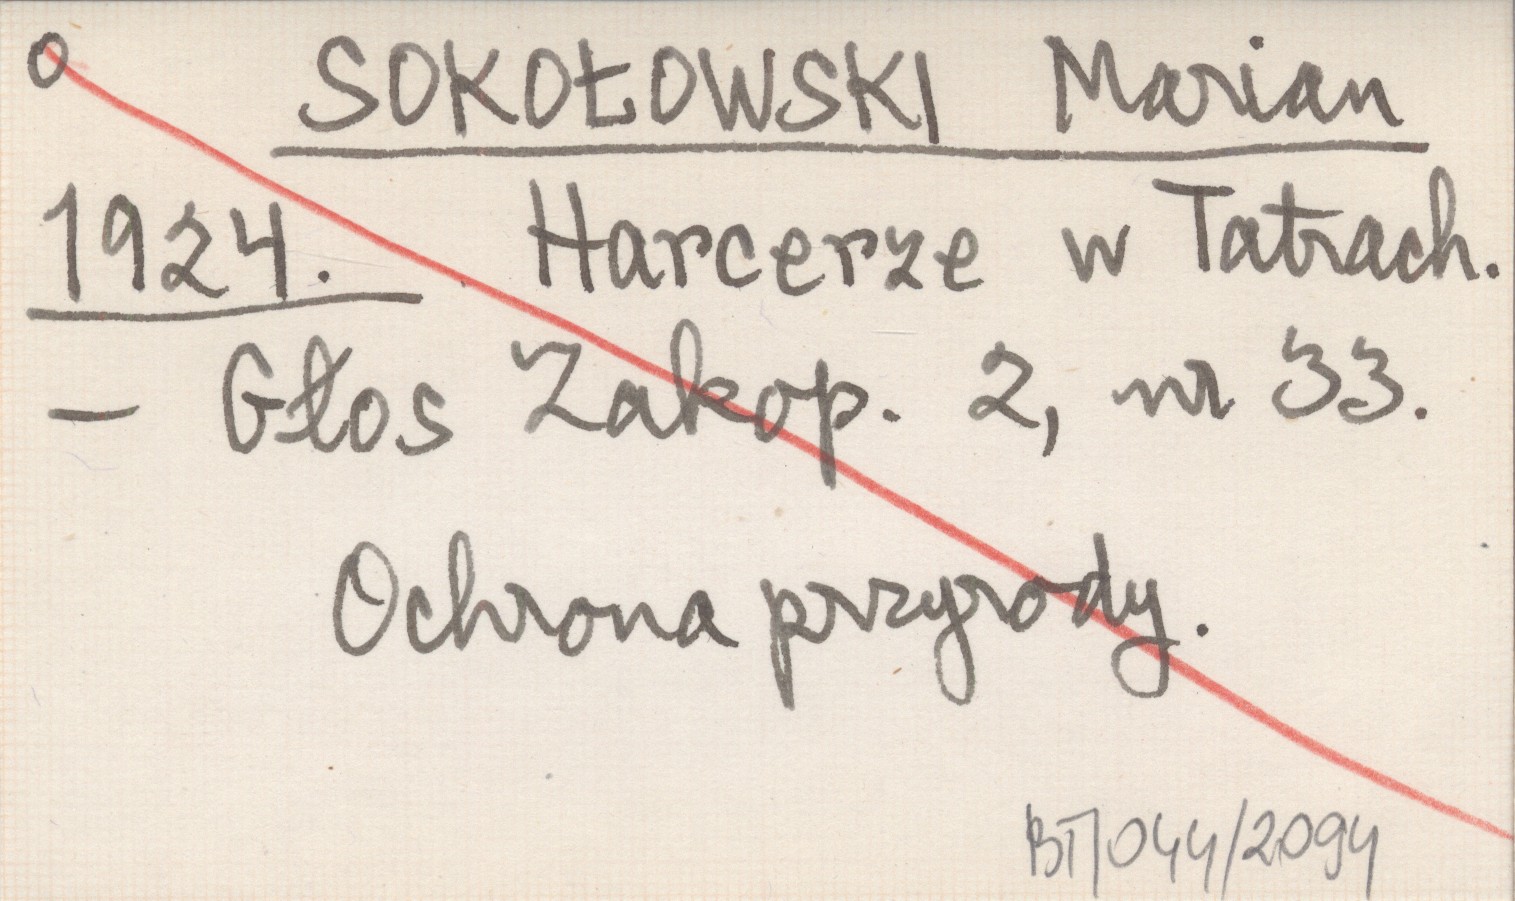 O SOKOŁOWSKI Marian
1924. Harcerze w Tatrach.
— Głos Zakop. 2, nr 33.
Ochrona przyrody.
BT/044/2094